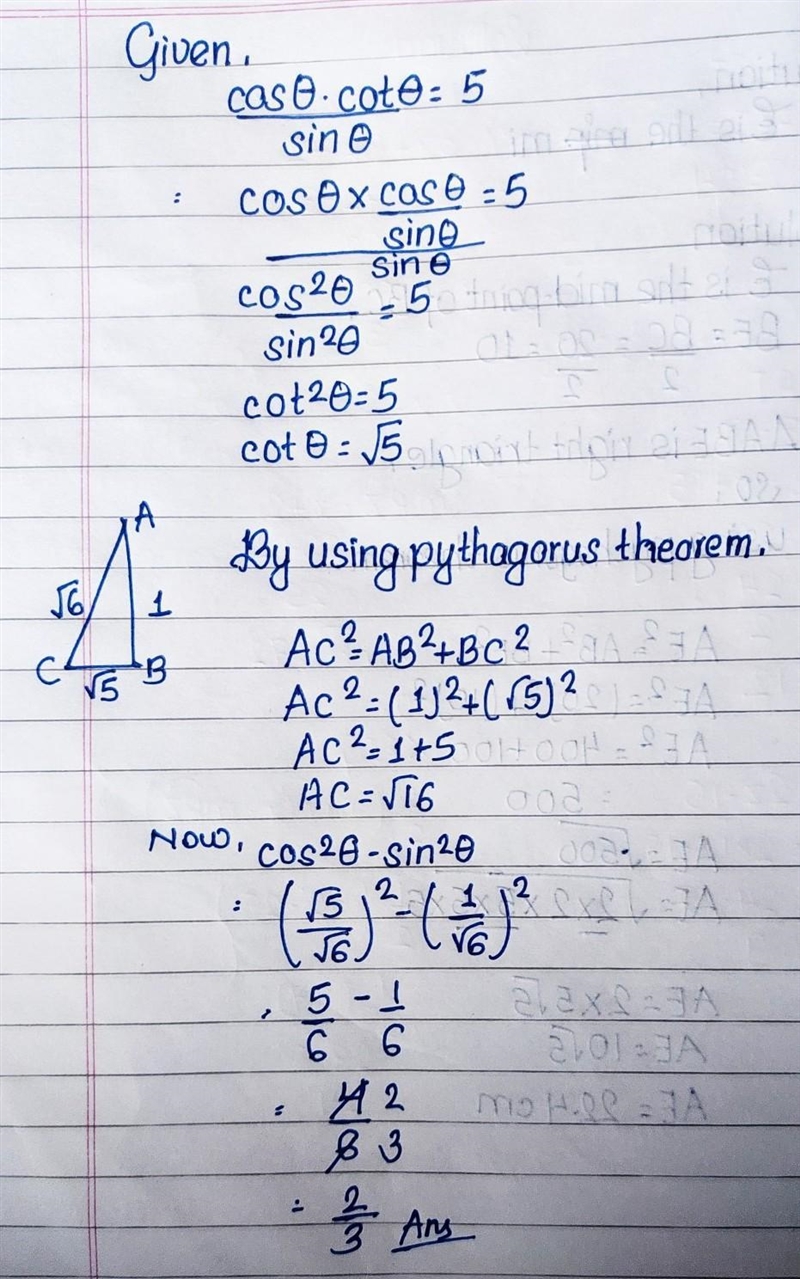 Given.
casθ·cotθ = 5
sinθ
: cosθ × casθ = 5
sinθ
sinθ
cos²θ = 5
sin²θ
cot²θ = 5
cotθ = √5
A
√6 1
C B
√5
By using pythagorus theorem.
AC² = AB² + BC²
AC² = (1)² + (√5)²
AC² = 1+5
AC = √16
Now, cos²θ - sin²θ
: (√5/√6)² - (1/√6)²
, 5/6 - 1/6
= 4 2
6 3
= 2/3 Ans